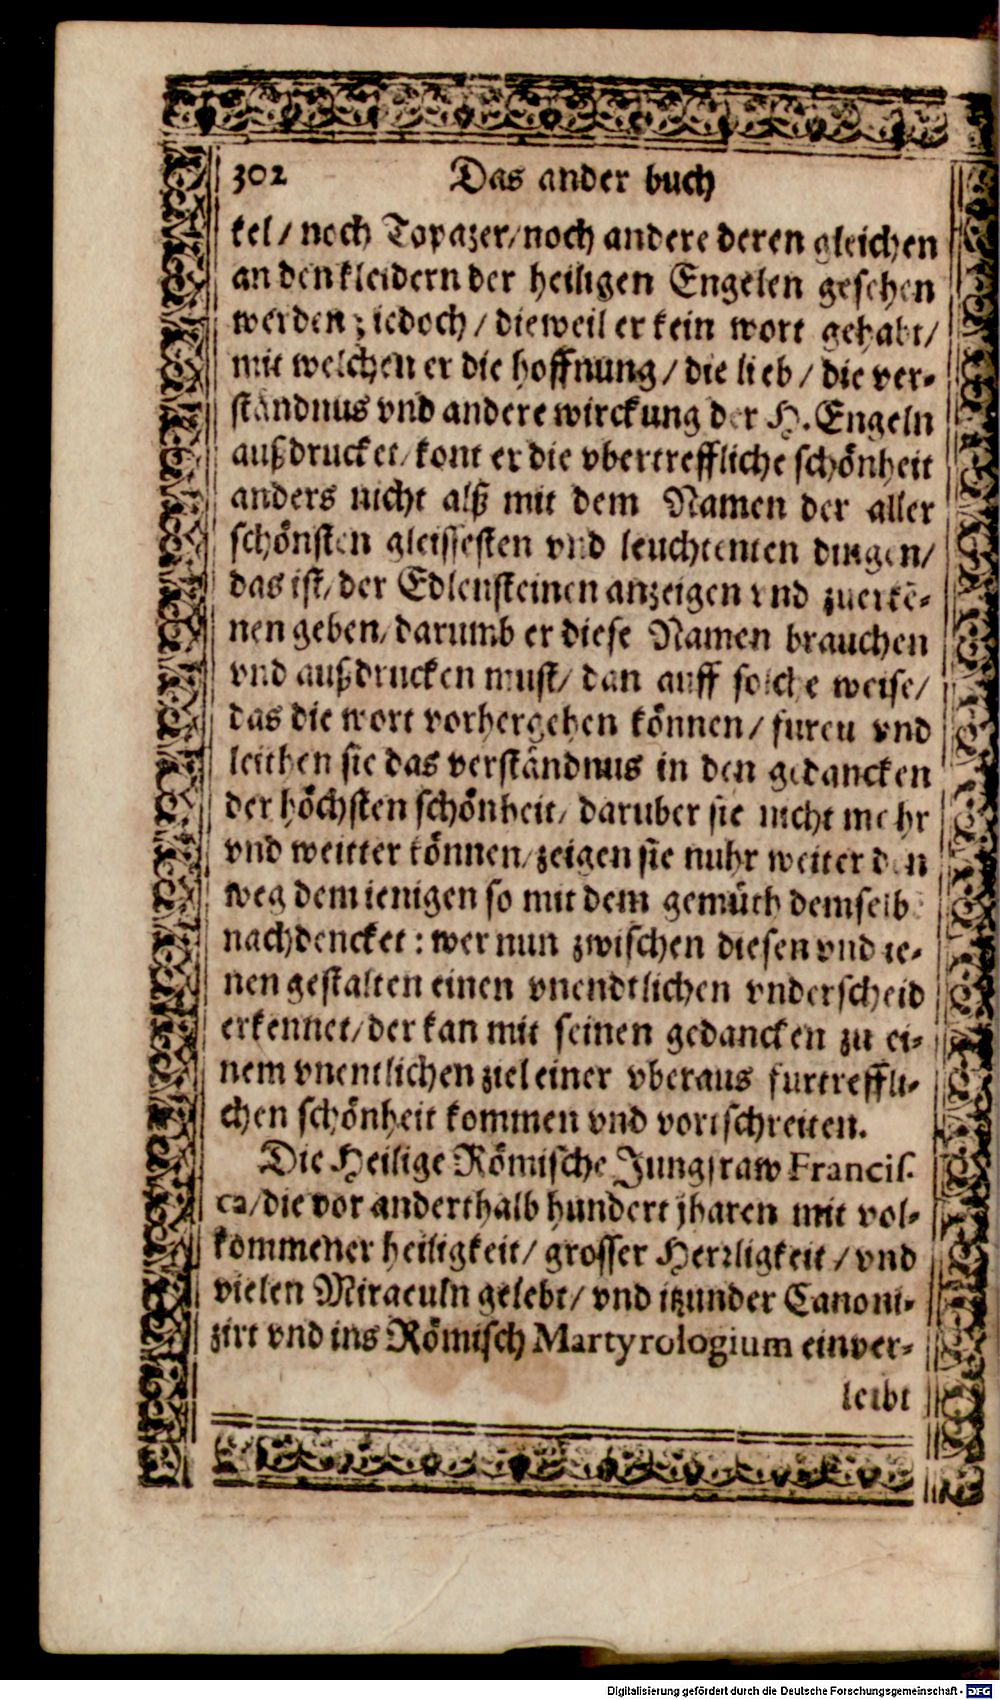 302 Das ander buch
kel/ noch Topazer/noch andere deren gleichen
an den kleidern der heiligen Engelen gesehen
werden; iedoch/ dieweil er kein wort gehabt/
mit welchen er die hoffnung/ die lieb/ die ver-
ständnus vnd andere wirckung der H. Engeln
außdrucket/ kont er die vbertreffliche schönheit
anders nicht alß mit dem Namen der aller
schönsten gleissesten vnd leuchtenten dingen/
das ist/ der Edlensteinen anzeigen vnd zuerkē-
nen geben/ darumb er diese Namen brauchen
vnd außdrucken must/ dan auff solche weise/
das die wort vorhergehen können/ furen vnd
leithen sie das verständnus in den gedancken
der höchsten schönheit/ daruber sie nicht mehr
vnd weitter können/ zeigen sie nuhr weiter den
weg dem ienigen so mit dem gemüth demselb
nachdencket: wer nun zwischen diesen vnd ie-
nen gestalten einen vnendtlichen vnderscheid
erkennet/ der kan mit seinen gedancken zu ei-
nem vnentlichen ziel einer vberaus furtreffli-
chen schönheit kommen vnd vortschreiten.
Die Heilige Römische Jungfraw Francis-
ca/ die vor anderthalb hundert jharen mit vol-
kommener heiligkeit/ grosser Herrligkeit/ vnd
vielen Miraculn gelebt/ vnd itzunder Canoni-
zirt vnd ins Römisch Martyrologium einver-
leibt
Digitalisierung gefördert durch die Deutsche Forschungsgemeinschaft - DFG